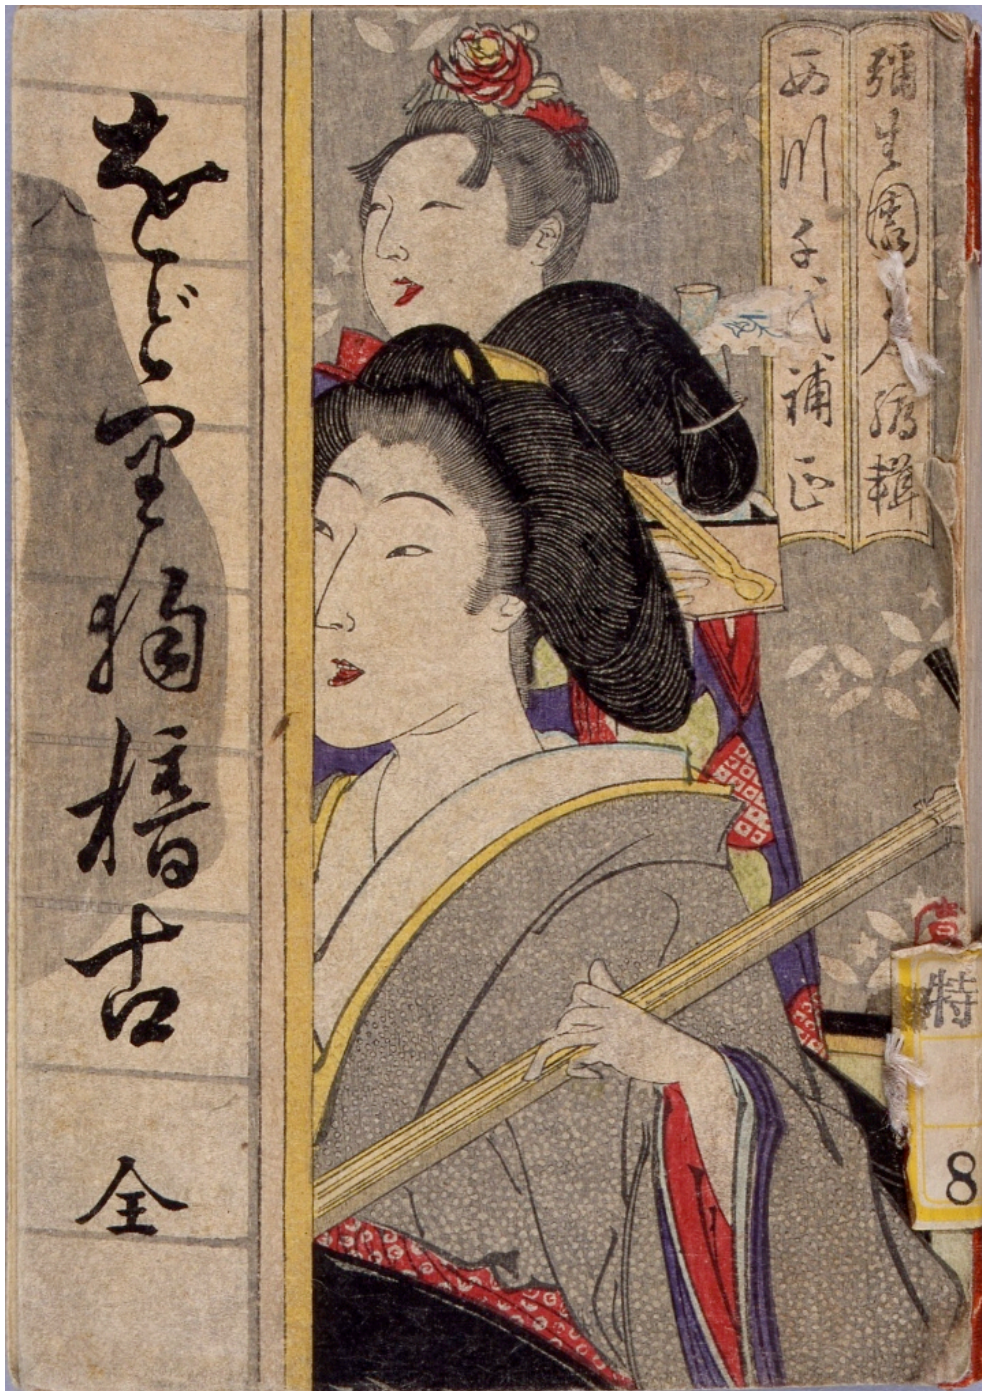 彌生園主人編輯
西川千代補正
をどり獨稽古
全
特
8